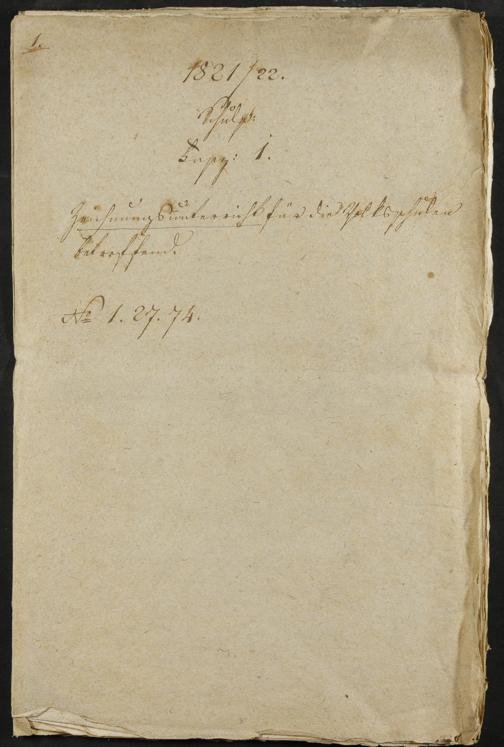 1.
1821/22.
Schulf:
Casp: 1.
Zeichnungsunterricht für die Volksschulen
betreffend.
No 1. 27. 74.